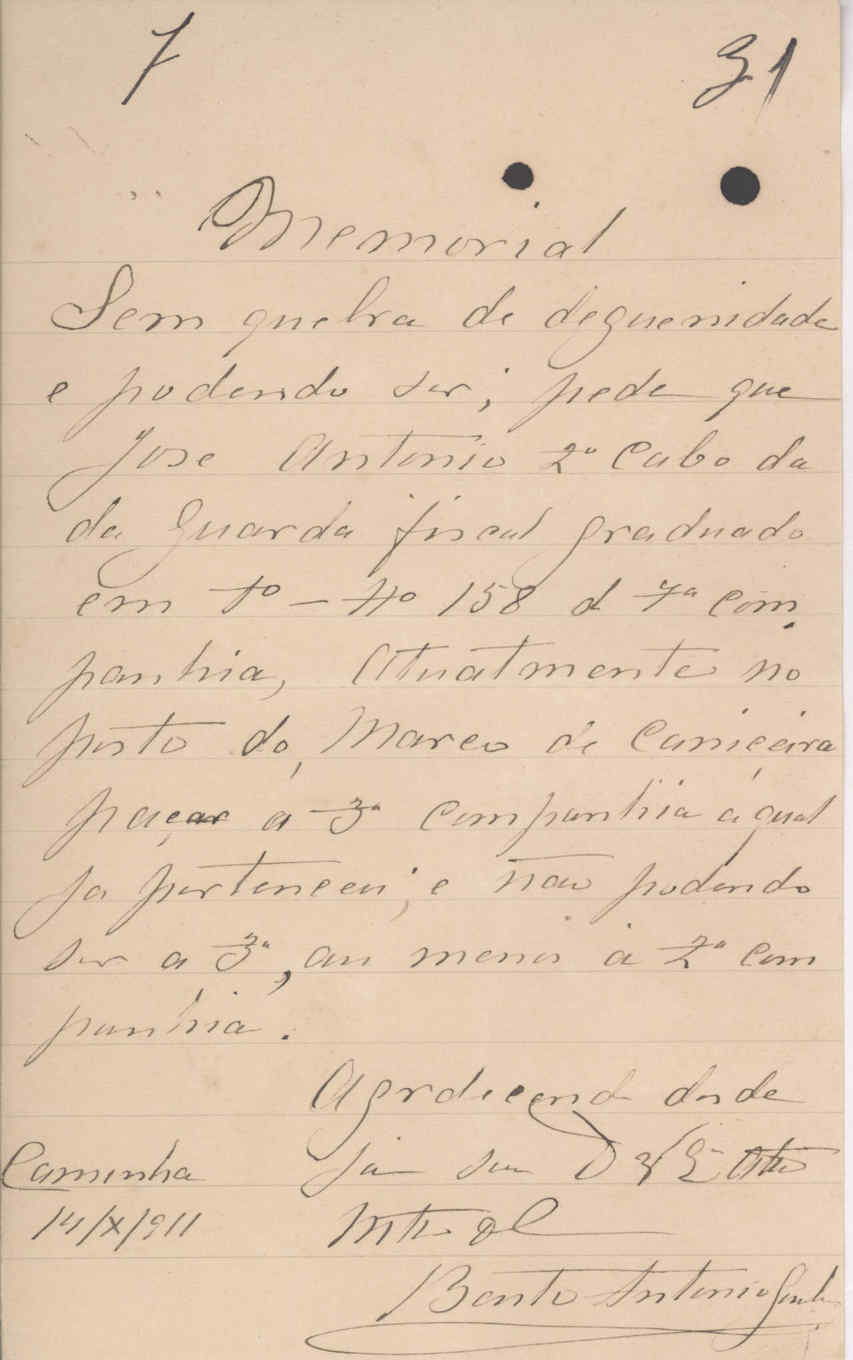 7 31
Memorial
Sem quebra de deguenidade
e podendo ser; pede que
Jose Antonio 2º Cabo da
da Guarda fiscal graduado
em 1º - Nº 158 d 7ª com
panhia, Atualmente no
posto do Marco de Caniceira
paçar á 3ª Companhia á qual
ja pertenceu; e não podendo
ser a 3ª, au menos á 2ª Com
panhia.
Agrdecend desde
já seu D
Caminha
14/X/911
Bento Antonio